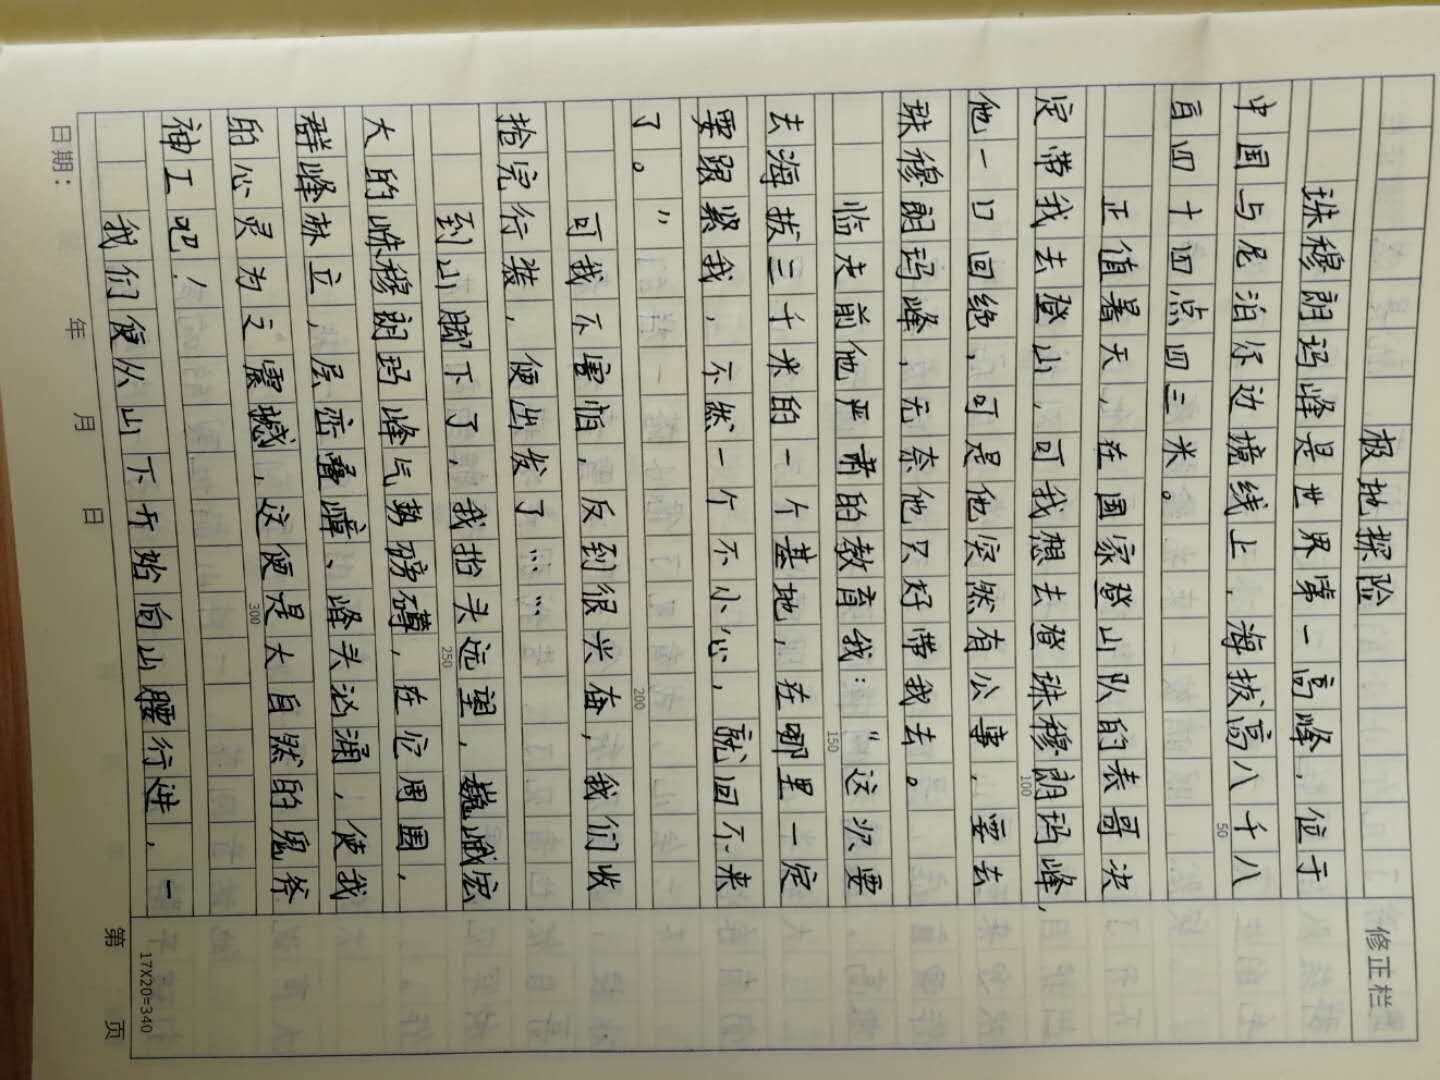 极地探险
修正栏
珠穆朗玛峰是世界第一高峰，位于
中国与尼泊尔边境线上，海拔高八千八
百四十四点四三米。
正值暑天，在国家登山队的表哥决
定带我去登山，可我想去登珠穆朗玛峰，
他一口回绝，可是他突然有公事，要去
珠穆朗玛峰，无奈他只好带我去。
临走前他严肃的教育我：“这次要
去海拔三千米的一个基地，在哪里一定
要跟紧我，不然一个不小心，就回不来
了。”
可我不害怕，反到很兴奋，我们收
拾完行装，便出发了……
到山脚下了，我抬头远望，巍峨宏
大的珠穆朗玛峰气势磅礴，在它周围，
群峰林立，层峦叠嶂、峰头汹涌，使我
的心灵为之震撼，这便是大自然的鬼斧
神工吧！
我们便从山下开始向山腰行进，一
50
100
150
200
250
300
17X20=340
日期： 年 月 日 第 页